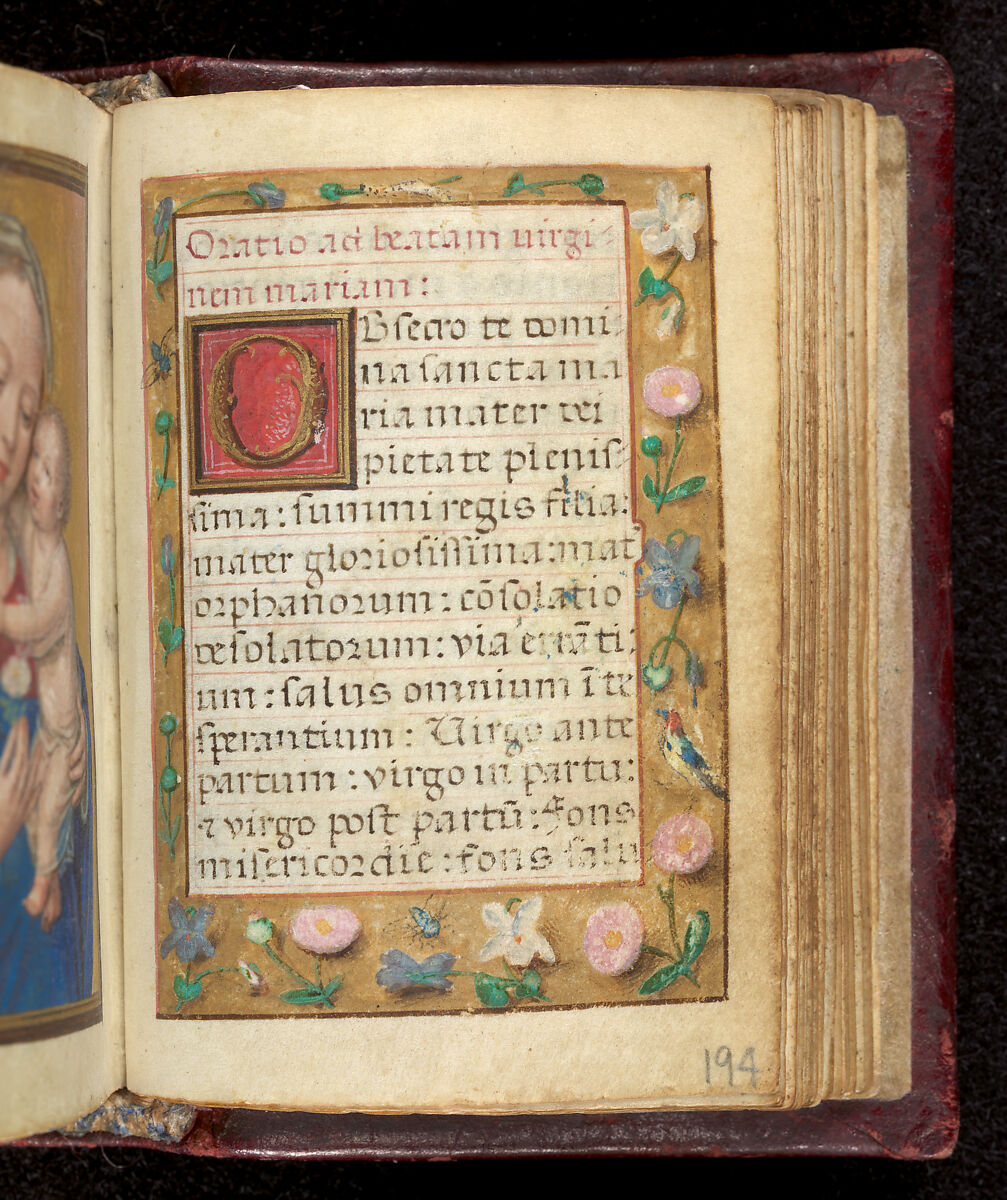 Oratio ad beatam uirgi-
nem mariam:
OBsecro te domi-
na sancta ma
ria mater dei
pietate plenis-
sima: summi regis filia:
mater gloriosissima: mat̃
orphanorum: cõsolatio
desolatorum: via errãti-
um: salus omnium ĩ te
sperantium: Uirgo ante
partum: virgo in partu:
⁊ virgo post partũ: Fons
misericordie: fons salu
194